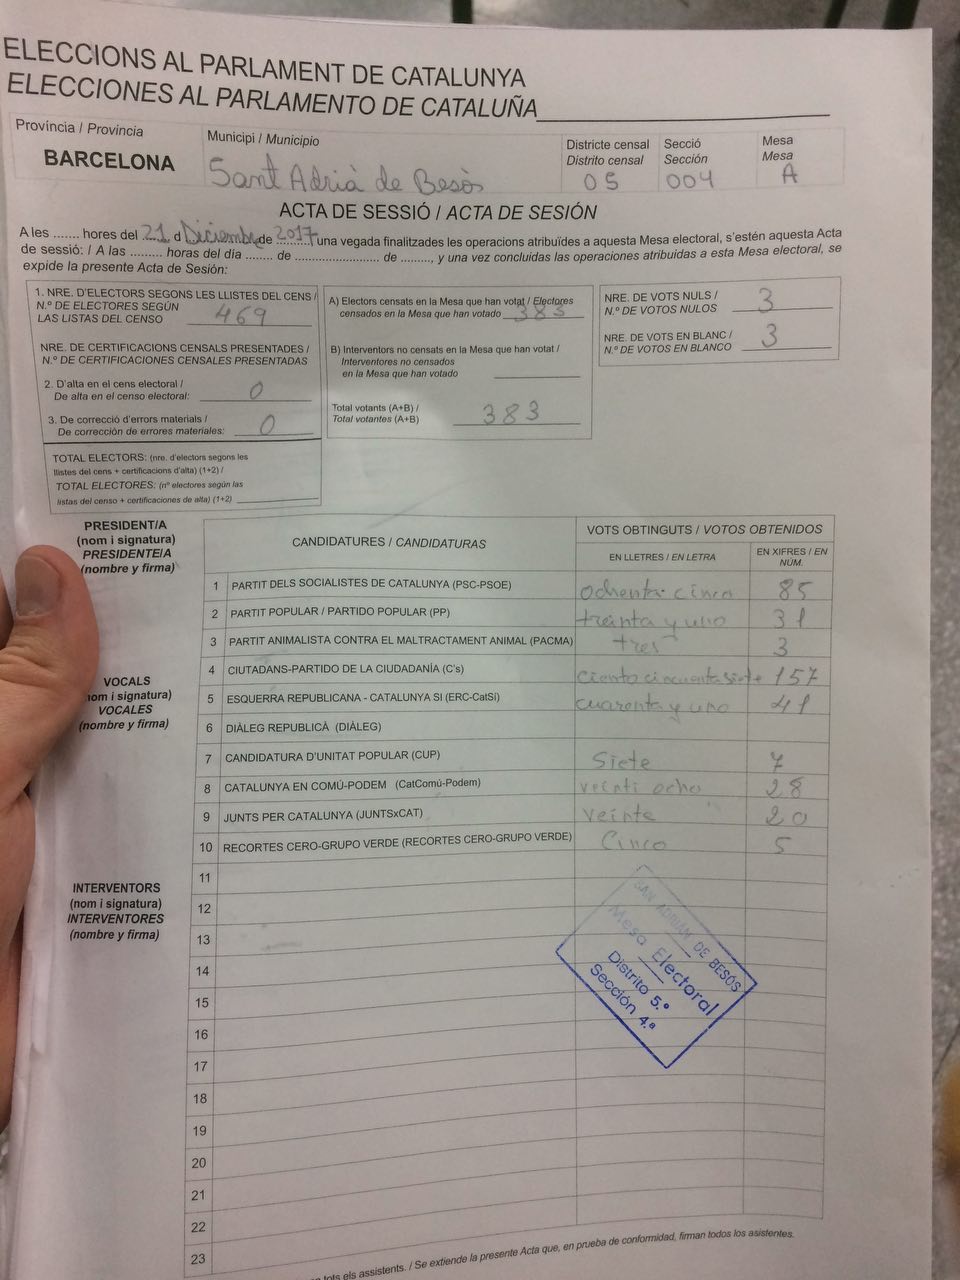 ELECCIONS AL PARLAMENT DE CATALUNYA
ELECCIONES AL PARLAMENTO DE CATALUÑA
Província / Provincia
BARCELONA
Municipi / Municipio
Sant Adrià de Besòs
Districte censal
Distrito censal
05
Secció
Sección
004
Mesa
Mesa
A
ACTA DE SESSIÓ / ACTA DE SESIÓN
A les ....... hores del 21 d Diciembre de 2017, una vegada finalitzades les operacions atribuïdes a aquesta Mesa electoral, s'estén aquesta Acta
de sessió: / A las ......... horas del día ....... de ...................... de ........, y una vez concluidas las operaciones atribuidas a esta Mesa electoral, se
expide la presente Acta de Sesión:
1. NRE. D'ELECTORS SEGONS LES LLISTES DEL CENS /
N.º DE ELECTORES SEGÚN
LAS LISTAS DEL CENSO 469
NRE. DE CERTIFICACIONS CENSALS PRESENTADES /
N.º DE CERTIFICACIONES CENSALES PRESENTADAS
2. D'alta en el cens electoral /
De alta en el censo electoral: 0
3. De correcció d'errors materials /
De corrección de errores materiales: 0
TOTAL ELECTORS: (nre. d'electors segons les
llistes del cens + certificacions d'alta) (1+2) /
TOTAL ELECTORES: (nº electores según las
listas del censo + certificaciones de alta) (1+2)
A) Electors censats en la Mesa que han votat / Electores
censados en la Mesa que han votado 383
B) Interventors no censats en la Mesa que han votat /
Interventores no censados
en la Mesa que han votado
Total votants (A+B) /
Total votantes (A+B) 383
NRE. DE VOTS NULS /
N.º DE VOTOS NULOS 3
NRE. DE VOTS EN BLANC /
N.º DE VOTOS EN BLANCO 3
PRESIDENT/A
(nom i signatura)
PRESIDENTE/A
(nombre y firma)
VOCALS
nom i signatura)
VOCALES
(nombre y firma)
INTERVENTORS
(nom i signatura)
INTERVENTORES
(nombre y firma)
CANDIDATURES / CANDIDATURAS
VOTS OBTINGUTS / VOTOS OBTENIDOS
EN LLETRES / EN LETRA
EN XIFRES / EN
NÚM.
1 PARTIT DELS SOCIALISTES DE CATALUNYA (PSC-PSOE) ochenta cinco 85
2 PARTIT POPULAR / PARTIDO POPULAR (PP) treinta y uno 31
3 PARTIT ANIMALISTA CONTRA EL MALTRACTAMENT ANIMAL (PACMA) tres 3
4 CIUTADANS-PARTIDO DE LA CIUDADANÍA (C's) ciento cincuenta siete 157
5 ESQUERRA REPUBLICANA - CATALUNYA SI (ERC-CatSí) cuarenta y uno 41
6 DIÀLEG REPUBLICÀ (DIÀLEG)
7 CANDIDATURA D'UNITAT POPULAR (CUP) Siete 7
8 CATALUNYA EN COMÚ-PODEM (CatComú-Podem) veinti ocho 28
9 JUNTS PER CATALUNYA (JUNTSxCAT) veinte 20
10 RECORTES CERO-GRUPO VERDE (RECORTES CERO-GRUPO VERDE) Cinco 5
11
12
13
14
15
16
17
18
19
20
21
22
23
SAN ADRIÁN DE BESÓS
Mesa Electoral
Distrito 5.º
Sección 4.ª
tots els assistents. / Se extiende la presente Acta que, en prueba de conformidad, firman todos los asistentes.